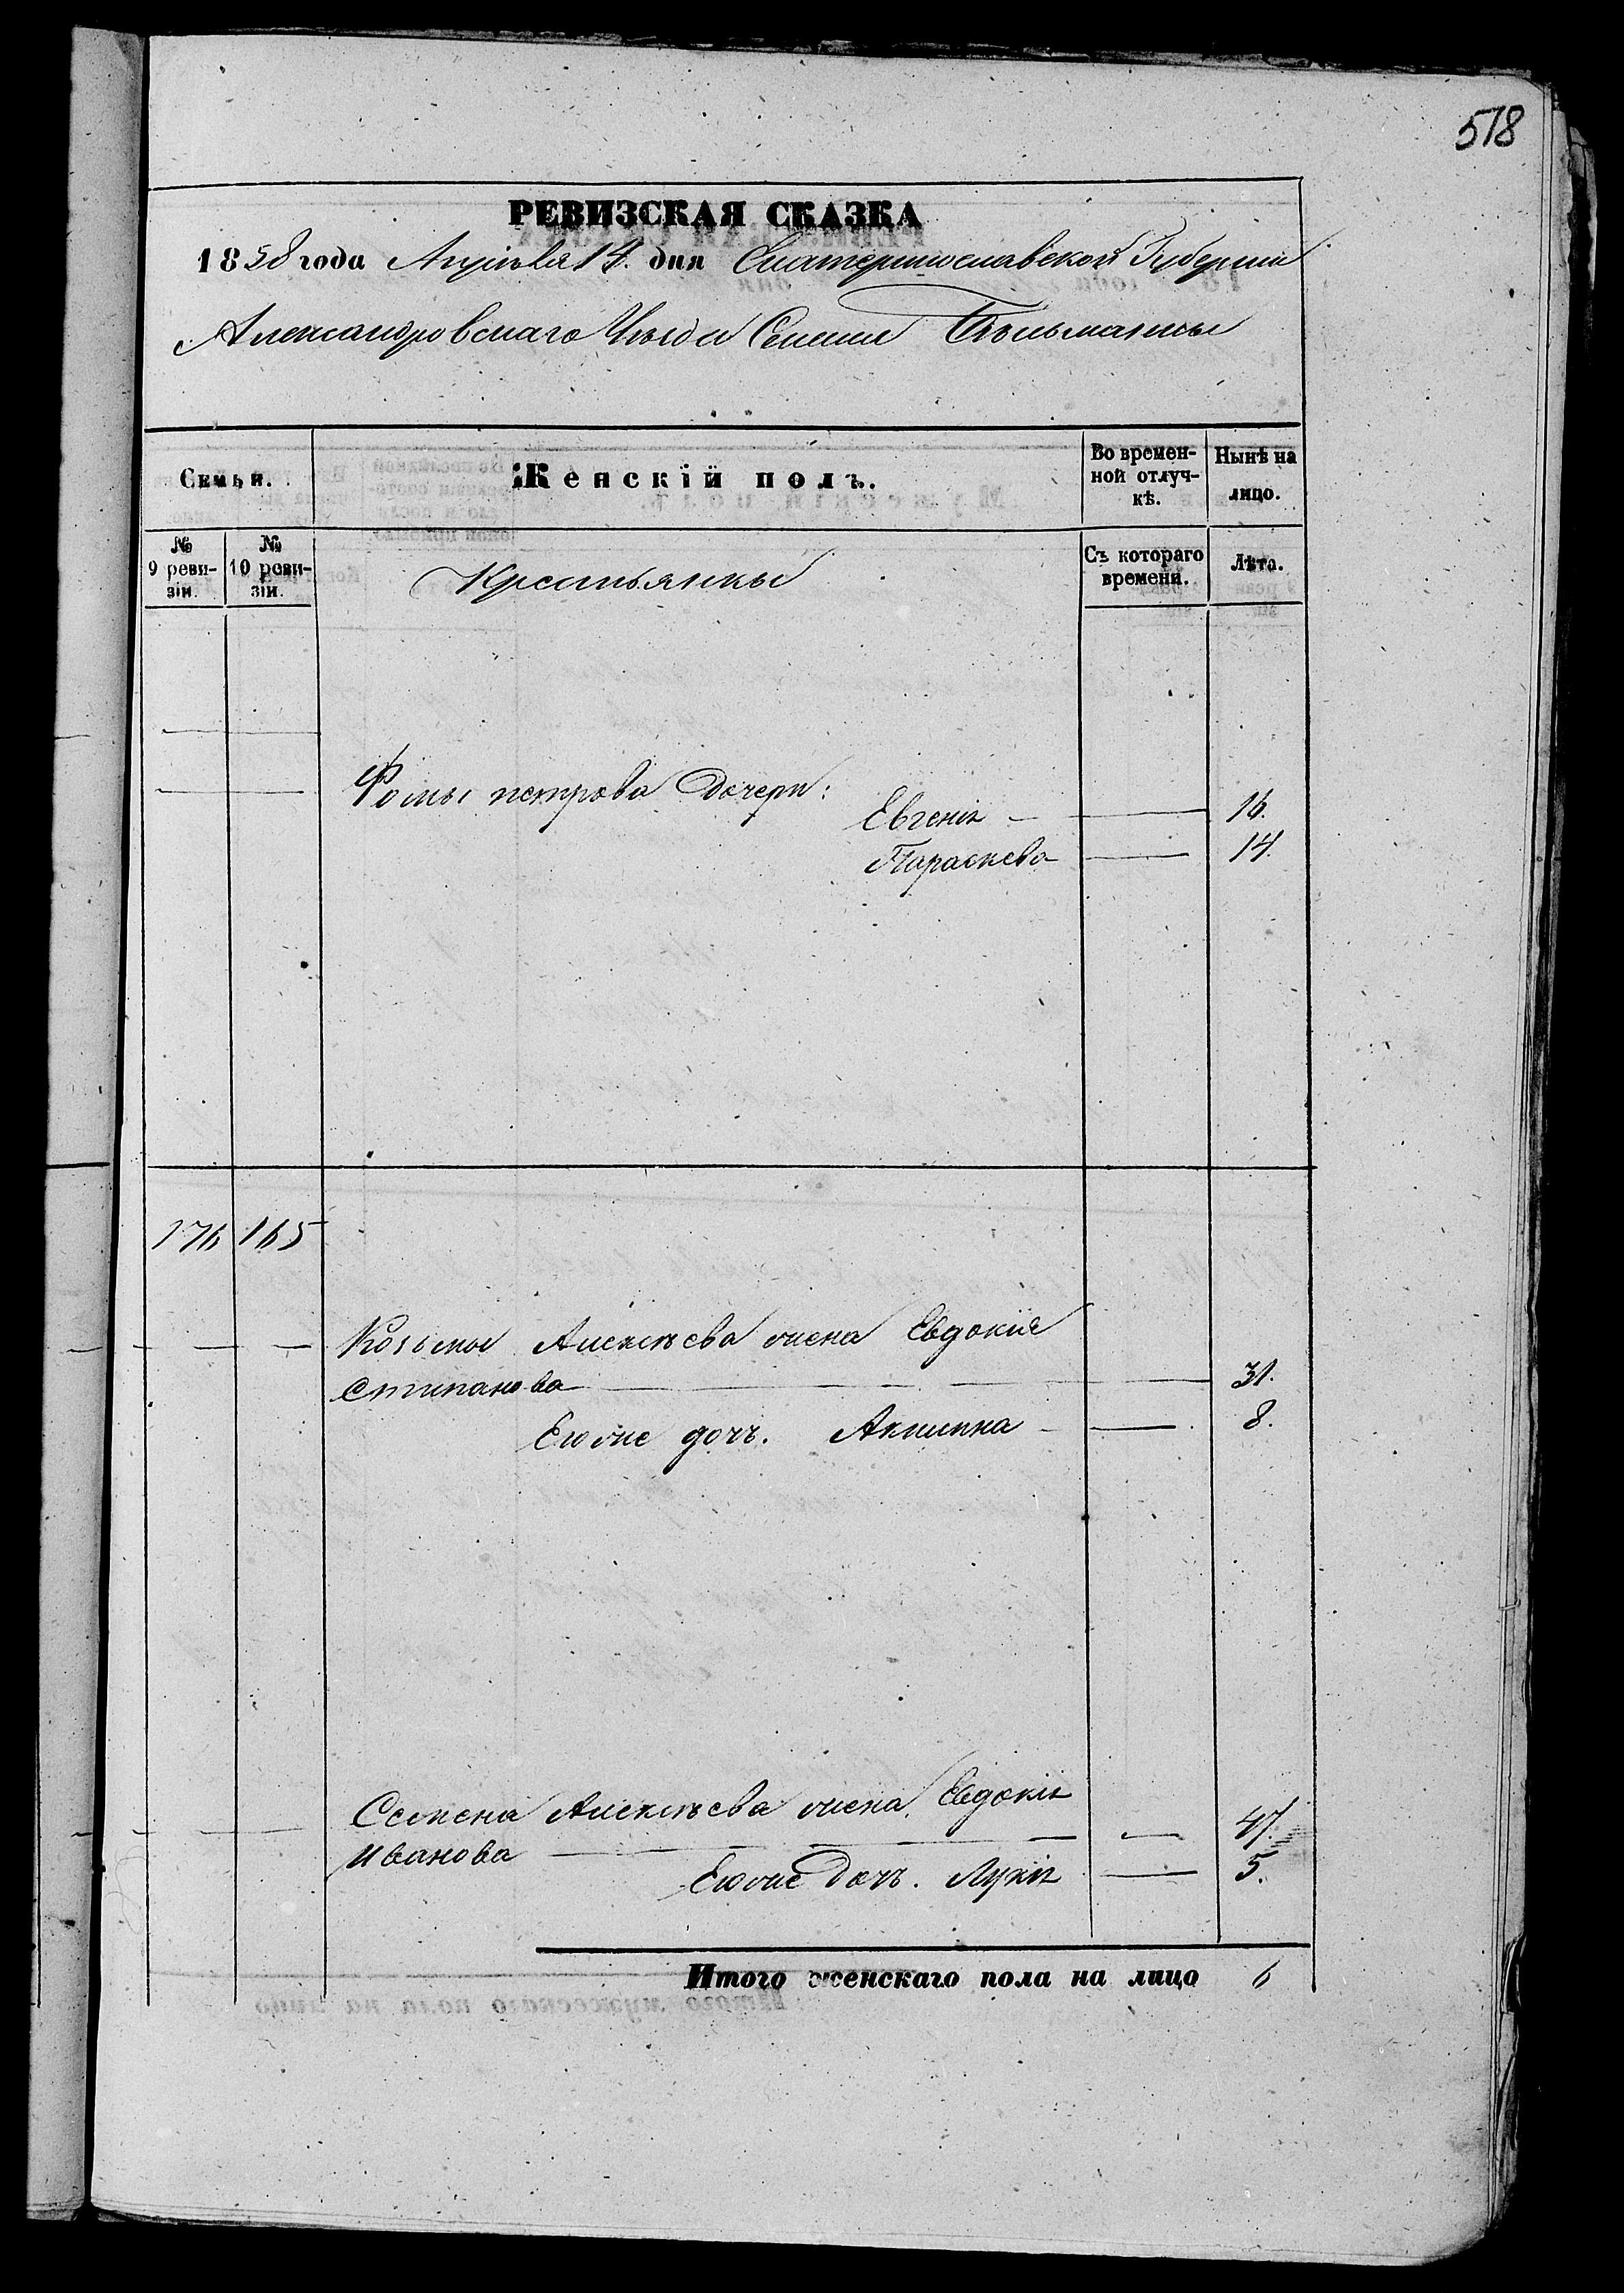 518
РЕВИЗСКАЯ СКАЗКА
1858 года Апрѣля 14. дня Екатеринославской Губерніи
Александровскаго Уѣзда Селенія Бѣльманки
Семьи. Женскій полъ. Во времен- Нынѣ на
ной отлуч- лицо.
кѣ.
№ № Крестьянки Съ котораго Лѣта.
9 реви- 10 реви- времени.
зіи. зіи.
Фомы петрова Дочери:
Евгенія — 16.
Параскева — 14.
176 165
Козьмы Алексѣева жена Евдокія
Стипанова — 31.
Еюже дочь. Акилина — 8.
Семена Алексѣева жена Евдокія
Иванова — 47.
Еюже Дочь. Лукія — 5.
Итого женскаго пола на лицо 6